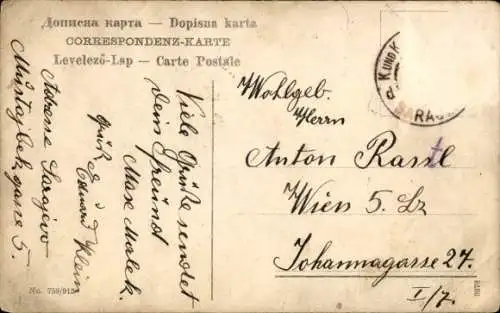 Дописна карта — Dopisna karta
CORRESPONDENZ-KARTE
Levelező-Lap — Carte Postale
Wohlgeb.
Herrn
Anton Rassl
Wien 5. Bz
Johannagasse 27.
I/7.
Viele Grüße sendet
Dein Freund
Max Malek.
Gruß
Eduard Klein
Adresse Sarajevo
Mustajbeg gasse 5.
K UND K
SARAJ
No. 759/913